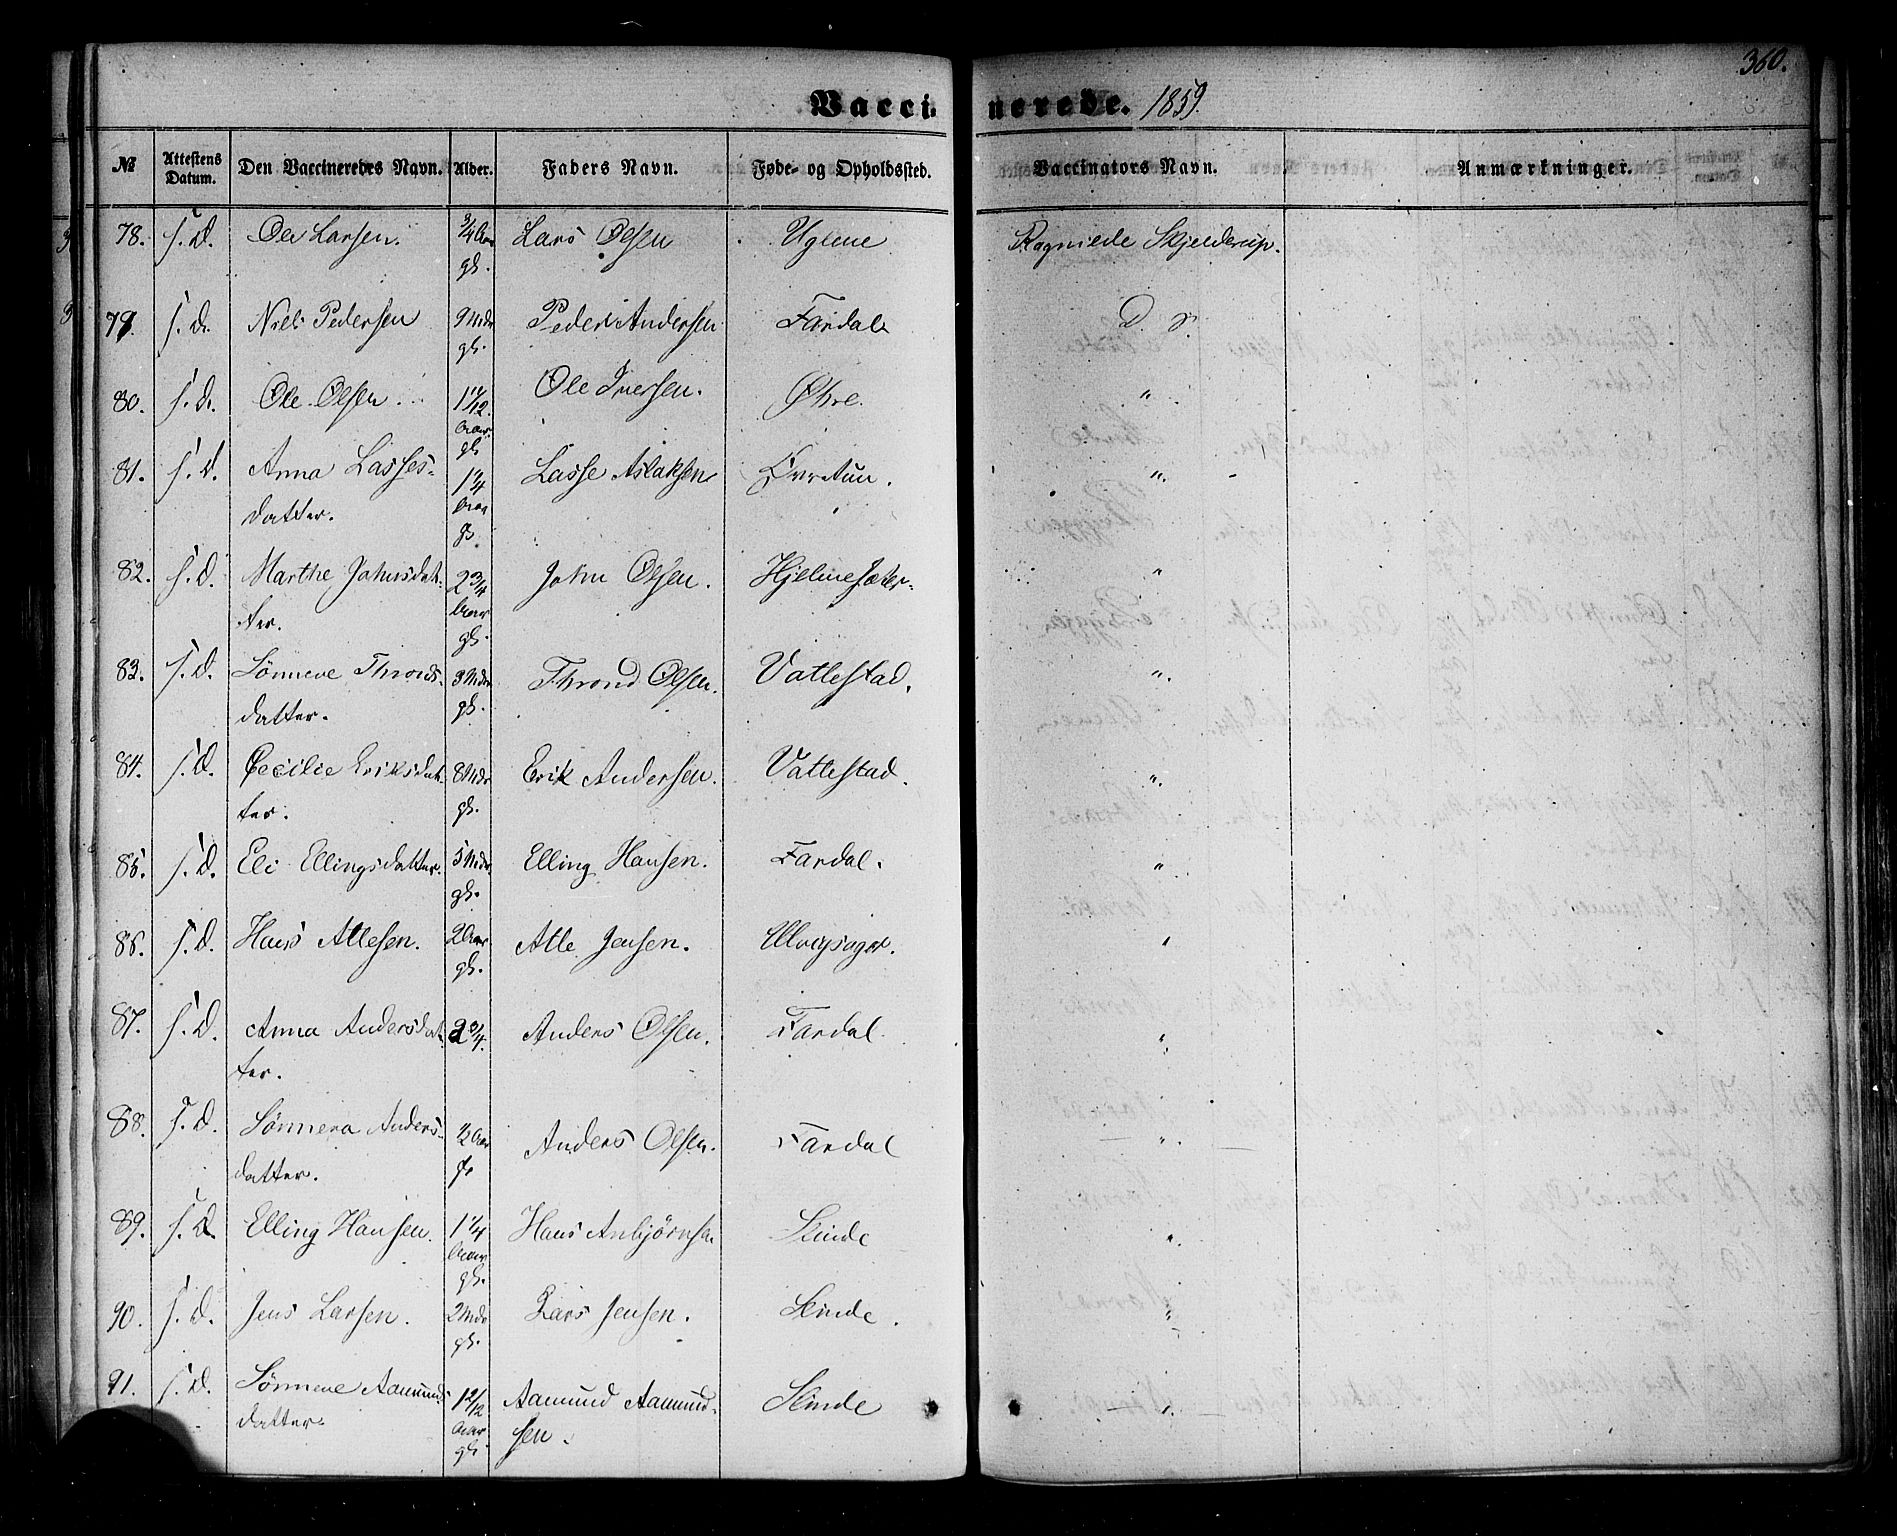 360.
Vacci- nerede. 1859.
№ Attestens Datum. Den Vaccineredes Navn. Alder. Faders Navn. Føde- og Opholdssted. Vaccinators Navn. Anmærkninger.
78. s. D. Ole Larsen. 3/4 Aar gl. Lars Olsen Uglene Ragnilde Skjelderup.
79. s. D. Niels Pedersen 9 Mdr gl. Peder Andersen Fardal D o
80. s. D. Ole Olsen 1 11/12 Aar gl. Ole Iversen. Øhre. "
81. s. D. Anna Lasses- 1 1/4 Lasse Aslaksen Øvretun. "
datter. Aar gl.
82. s. D. Marthe Johnsdat- 2 3/4 John Olsen. Hjelmesæter. "
ter. Aar gl.
83. s. D. Sønneve Thronds- 3 Mdr Thrond Olsen. Vattestad. "
datter. gl.
84. s. D. Cecilie Eriksdat- 8 Mdr Erik Andersen. Vattestad. "
ter. gl.
85. s. D. Eli Ellingsdatter. 5 Mdr gl. Elling Hansen. Fardal. "
86. s. D. Hans Attesen. 2 Aar gl. Atle Jensen. "
87. s. D. Anna Andersdat- 2 3/4. Anders Olsen. Fardal "
ter.
88. s. D. Sønneva Anders- 1/2 Aar Anders Olsen. Fardal "
datter. gl
89. s. D. Elling Hansen. 1 1/4 Aar gl. Hans Anbjørnsen Slinde "
90. s. D. Jens Larsen. 2 Mdr gl. Lars Jensen. Slinde. "
91. s. D. Sønneve Aamunds 1 2/12 Aamund Aamund- Slinde "
datter. Aar gl. sen.